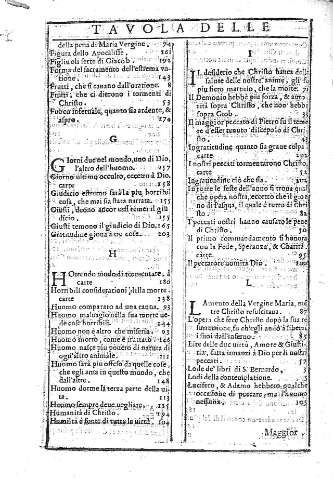 TAVOLA DELLE
della pena di Maria Vergine. 74
Figura dello Apocalisse. 161
Figliuola sette di Giacob. 192
Forma del sacramento dell'estrema vn-
tione. 143
Frutti, che si cauano dall'oratione. 8
Frutti, che ci dierono i tormenti di
Christo. 53
Fuoco infernale, quanto sia ardente, &
aspro. 174
G
Giorni due nel mondo, uno di Dio,
l'altro dell'huomo. 157
Giorno ultimo occulto, eccetto à Dio
carte 158
Giudicio estremo sarà la piu horribil
cosa, che mai sia stata narrata. 155
Giusti, douno ancor essi temere il giu-
dicio. 155
Giusti temono il giudicio di Dio. 165
203
H
Horrendo modo di tormentare. à
carte 180
Horribili considerationi della morte.
carte 138
Huomo comparato ad una canna. 93
Huomo maluagio nella sua morte ue-
de cose horribili. 144
Huomo non è altro che miseria. 93
Huomo morto, come è trattato. 146
Huomo nasce piu pouero di natura di
ogni altro animale. 211
Huomo sarà piu offeso da quelle cose
che egli ama in questo mondo, che
dall'altre. 148
Huomo dorme la terza parte della ui-
ta. 113
Huomo sempre deue uegliare. 115
Humanità di Christo. 194
Humiltà è fonte di tutte le uirtù. 104
I
Il desiderio che Christo hauea della
salute delle nostre anime, gli fu
piu fiero martirio, che la morte. 71
Il Demonio hebbe piu forza, & auto-
rità sopra Christo, che non hebbe
sopra Giob. 35
Il maggior peccato di Pietro fu il teme-
re d'esser tenuto discepolo di Chri-
sto. 63
Ingratitudine quanto sia graue colpa.
carte 192
I nostri peccati tormentarono Christo.
carte 52
In tutte le feste dell'anno si troua qual-
che opera nostra, eccetto che il gior-
no di Pasqua, il quale è tutto di Chri-
sto. 82
I peccati nostri hanno causato le pene
di Christo. 50
Il primo commandamento si honora
con la Fede, Speranza, & Charità.
carte
Il peccatore uomita Dio. 100
L
Lamento della Vergine Maria, mē-
tre Christo resuscitaua. 87
L'opera che fece Christo dopo la sua re-
surrettione, fu ch'egli andò à liberar
i suoi dall'inferno. 85
Lite delle due uirtù, Amore & Giusti-
tia, fatta innanzi à Dio per i nostri
peccati. 57
Lode de' libri di S. Bernardo. 3
Lodi della contemplatione. 3
Lucifero, & Adamo hebbero qualche
occasione di peccare, ma l'huomo
nessuna. 105
Maggior.